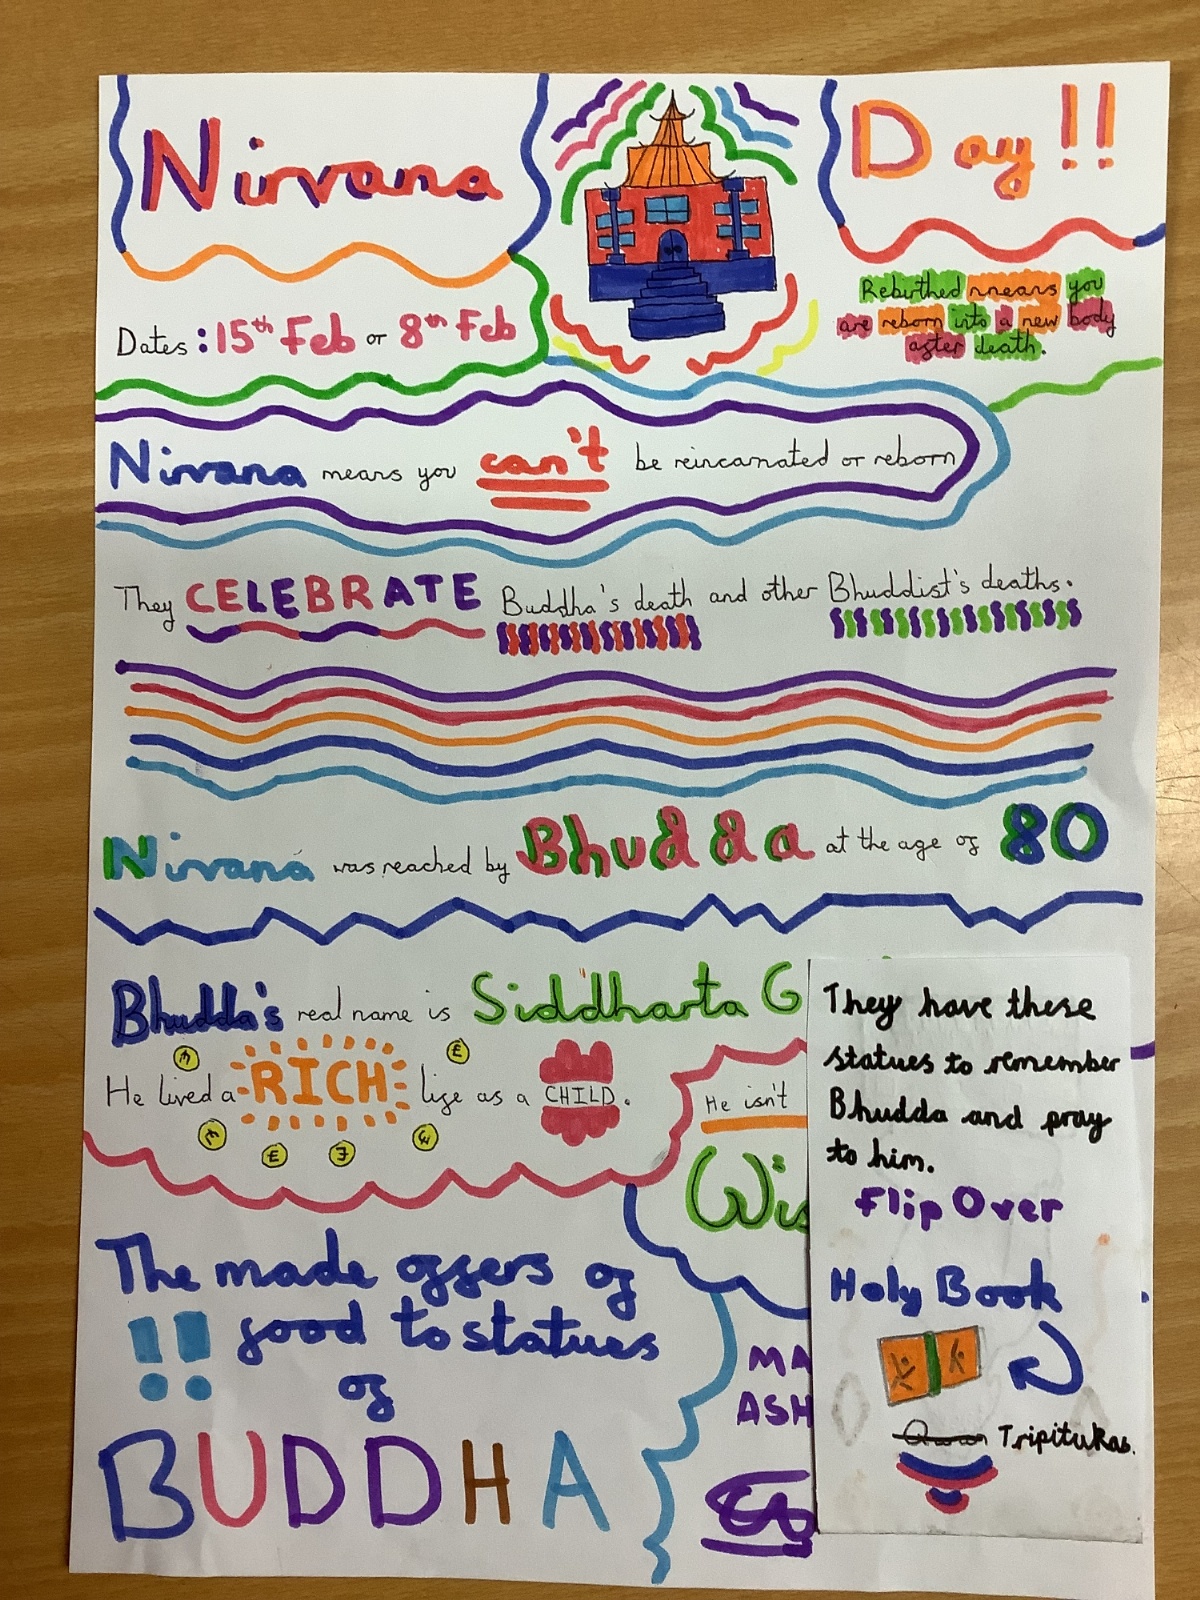 Nirvana Day!!
Dates: 15th Feb or 8th Feb
Rebirthed means you
are reborn into a new body
after death.
Nirvana means you can't be reincarnated or reborn
They CELEBRATE Buddha's death and other Bhuddist's deaths.
Nirvana was reached by Bhudda at the age of 80
Bhudda's real name is Siddharta G
He lived a RICH life as a CHILD.
He isn't
Wis
The made offers of
!! food to statues
of
BUDDHA
MA
ASH
They have these
statues to remember
Bhudda and pray
to him.
Flip Over
Holy Book
Tripitukas.